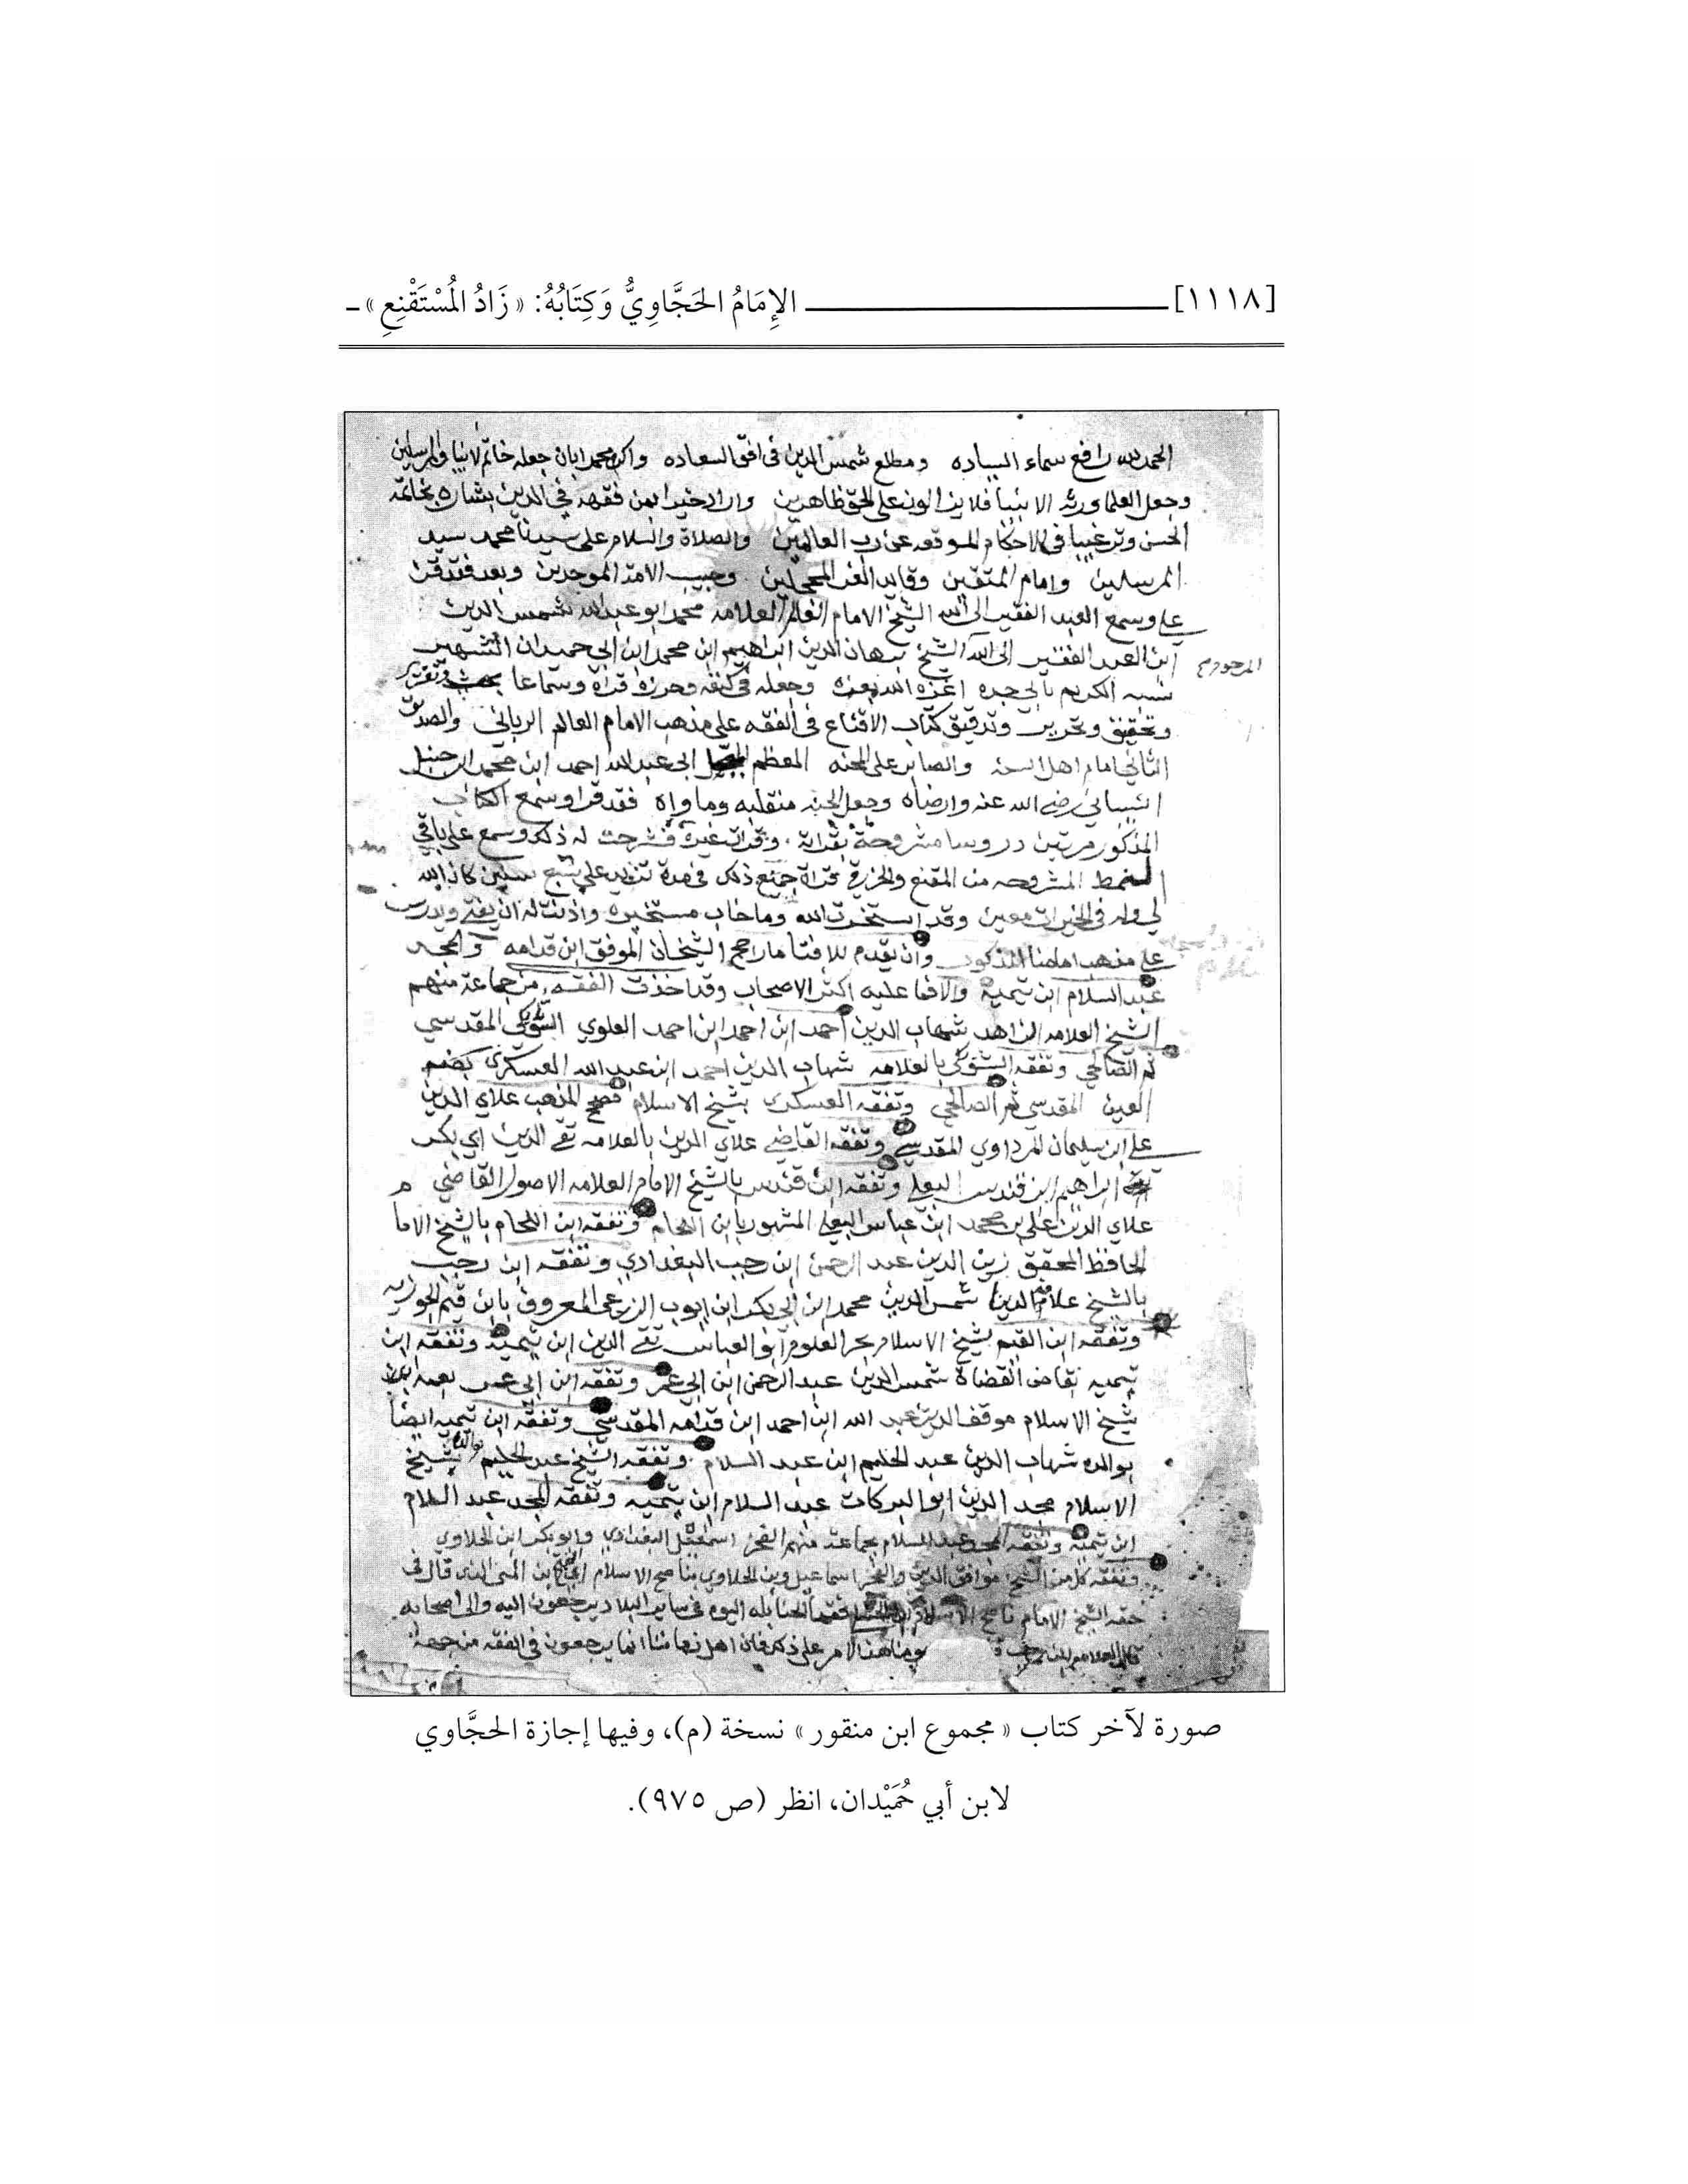 [١١١٨] الإِمَامُ الحَجَّاوِيُّ وَكِتَابُهُ: «زَادُ المُسْتَقْنِعِ»
الحمد لله رافع سماء السياده ومطلع شمس الدين في افق السعاده واكرم محمدا بان جعله خاتم الانبيا والمرسلين
وجعل العلما ورثة الانبيا فلا يزالون على الحق ظاهرين واراد خيرا بمن فقهه في الدين بشارة بخاتمة
الحسن وترغيبا في الاحكام الموقعه عن رب العالمين والصلاة والسلام على سيدنا محمد سيد
المرسلين وامام المتقين وقايد الغر المحجلين وحبيب الامة الموحدين وبعد فقد قرا
علي وسمع العبد الفقير الى الله الشيخ الامام العالم العلامه محمد ابو عبد الله شمس الدين
ابن العبد الفقير الى الله الشيخ برهان الدين ابراهيم ابن محمد ابن ابي حميدان الشهير
نسبه الكريم بابي جده اعزه الله بعزه وجعله في كنفه وحرزه قراة وسماعا بحث وتقرير
وتحقيق وتحرير وتدقيق كتاب الاقناع في الفقه على مذهب الامام العالم الرباني والصديق
الثاني امام اهل السنة والصابر على المحنه المعظم المبجل ابي عبد الله احمد ابن محمد ابن حنبل
الشيباني رضي الله عنه وارضاه وجعل الجنة منقلبه وماواه فقد قرا وسمع الكتاب
المذكور مرتين دروسا مشروحة بقراته وبقراة غيره فشرحت له ذلك وسمع علي باقي
المشروحه من المقنع والمحرر في قراة جميع ذلك في مدة تزيد على سبع سنين كان الله
لي وله في الخيرات معين وقد استخرت الله وما خاب مستخيره واذنت له ان يفتي ويدرس
على مذهب امامنا المذكور وان يقدم للافتا ما رجح الشيخان الموفق ابن قدامه والمجد
عبد السلام ابن تيمية والا فما عليه اكثر الاصحاب وقد اخذت الفقه من جماعة منهم
الشيخ العلامه الزاهد شهاب الدين احمد ابن احمد ابن احمد العلوي الشويكي المقدسي
ثم الصالحي وتفقه الشويكي بالعلامه شهاب الدين احمد ابن عبد الله العسكري بضم
العين المقدسي ثم الصالحي وتفقه العسكري بشيخ الاسلام مصحح المذهب علاي الدين
علي ابن سليمان المرداوي المقدسي وتفقه القاضي علاي الدين بالعلامه تقي الدين ابي بكر
ابراهيم ابن قندس البعلي وتفقه ابن قندس بالشيخ الامام العلامه الاصولي القاضي
علاي الدين علي بن محمد ابن عباس البعلي المشهور بابن اللحام وتفقه ابن اللحام بالشيخ الاما
الحافظ المحقق زين الدين عبد الرحمن ابن رجب البغدادي وتفقه ابن رجب
بالشيخ شمس الدين محمد ابن ابي بكر ابن ايوب الزرعي المعروف بابن قيم الجوزيه
وتفقه ابن القيم بشيخ الاسلام بحر العلوم ابو العباس تقي الدين ابن تيمية وتفقه ابن
تيميه بقاضي القضاة شمس الدين عبد الرحمن ابن ابي عمر وتفقه ابن ابي عمر بعمه
شيخ الاسلام موفق الدين عبد الله ابن احمد ابن قدامه المقدسي وتفقه ابن تيميه ايضا
بوالده شهاب الدين عبد الحليم ابن عبد السلام وتفقه الشيخ عبد الحليم بوالده شيخ
الاسلام مجد الدين ابو البركات عبد السلام ابن تيميه وتفقه المجد عبد السلام
ابن تيمية وتفقه المجد عبد السلام بجماعة منهم الفخر اسمعيل البغدادي وابو بكر ابن الحلاوي
وتفقه كل من الشيخ موافق الدين والفخر اسماعيل وبن الحلاوي بناصح الاسلام بن المنى الذي قال في
حقه الشيخ الامام ناصح فقها الحنابله اليوم في ساير البلاد يرجعون اليه والى اصحابه
قال العلامه ابن رجب هذا الامر على ذلك فان اهل زماننا انما يرجعون في الفقه من جهة
صورة لآخر كتاب «مجموع ابن منقور» نسخة (م)، وفيها إجازة الحجَّاوي
لابن أبي حُمَيْدان، انظر (ص ٩٧٥).